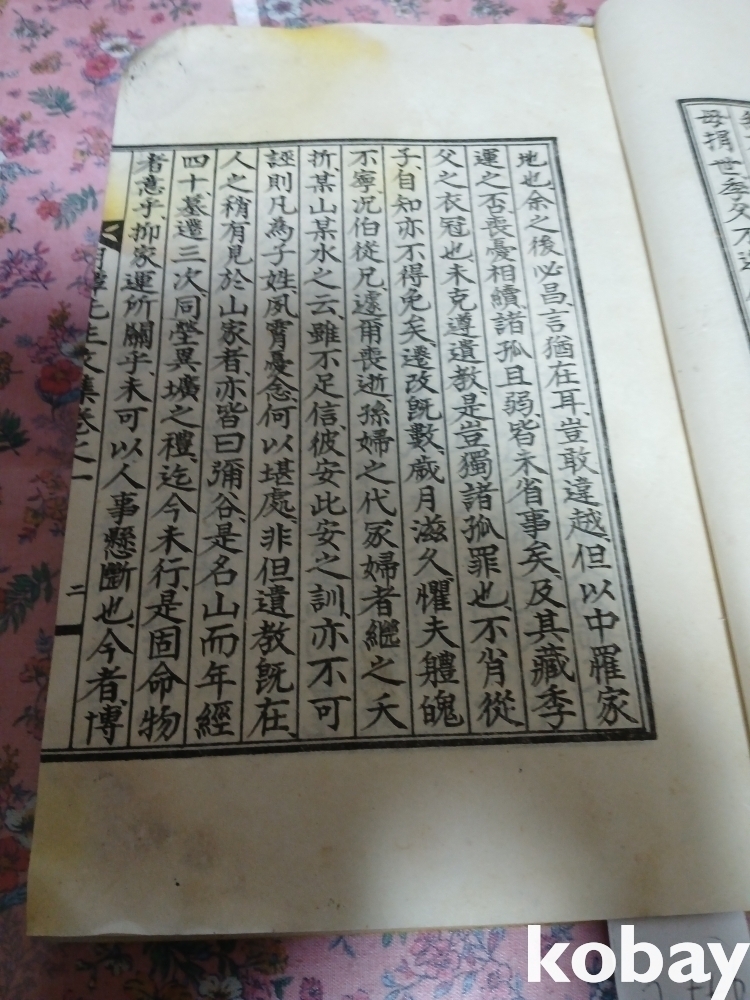 地也余之後必昌言猶在耳豈敢違越但以中罹家
運之否喪憂相續諸孤且弱皆未省事矣及其藏季
父之衣冠也未克遵遺教是豈獨諸孤罪也不肖從
子自知亦不得免矣遷改旣數歲月滋久懼夫軆魄
不寧况伯從兄遽爾喪逝孫婦之代冢婦者繼之夭
折某山某水之云雖不足信彼安此安之訓亦不可
誣則凡爲子姓夙宵憂念何以堪處非但遺教旣在
人之稍有見於山家者亦皆曰彌谷是名山而年經
四十墓遷三次同塋異壙之禮迄今未行是固命物
者悥乎抑家運所關乎未可以人事懸斷也今者博
先生文集卷之一
二
母捐世季父不
kobay